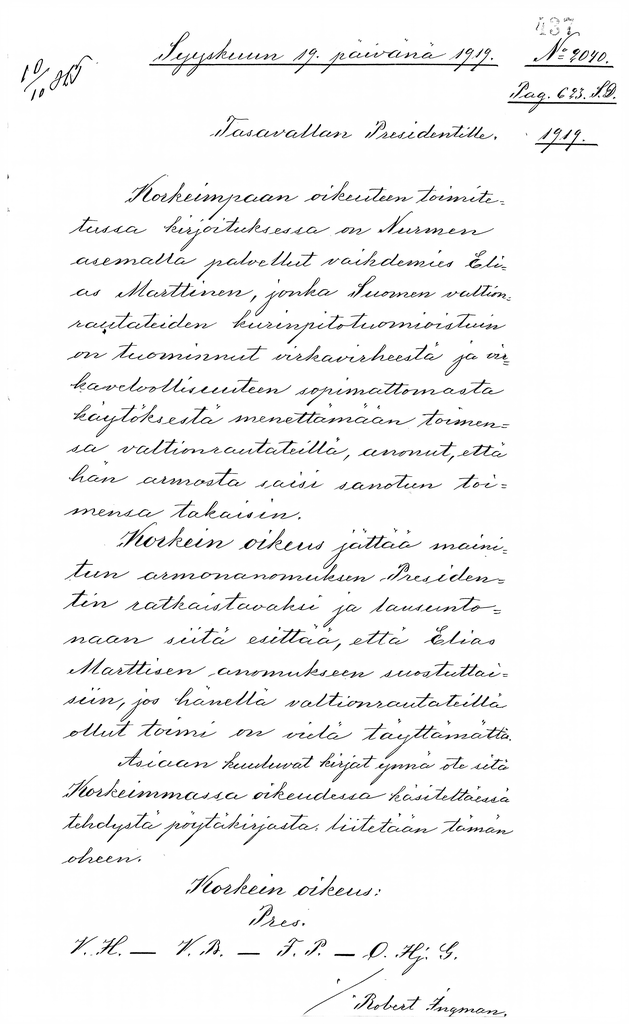 437
Syyskuun 19. päivänä 1919.
No 2040.
10/10
Pag. 623. S.D.
1919.
Tasavallan Presidentille.
Korkeimpaan oikeuteen toimite=
tussa kirjoituksessa on Nurmen
asemalla palvellut vaihdemies Eli=
as Marttinen, jonka Suomen valtion=
rautateiden kurinpitotuomioistuin
on tuominnut virkavirheestä ja vir=
kavelvollisuuteen sopimattomasta
käytöksestä menettämään toimen=
sa valtionrautateillä, anonut, että
hän armosta saisi sanotun toi=
mensa takaisin.
Korkein oikeus jättää maini=
tun armonanomuksen Presiden=
tin ratkaistavaksi ja lausunto=
naan siitä esittää, että Elias
Marttisen anomukseen suostuttai=
siin, jos hänellä valtionrautateillä
ollut toimi on vielä täyttämättä.
Asiaan kuuluvat kirjat ynnä ote sitä
Korkeimmassa oikeudessa käsiteltäessä
tehdystä pöytäkirjasta liitetään tämän
oheen.
Korkein oikeus:
Pres.
V. H. — V. B. — F. P. — O. Hj. G.
/ Robert Ingman.